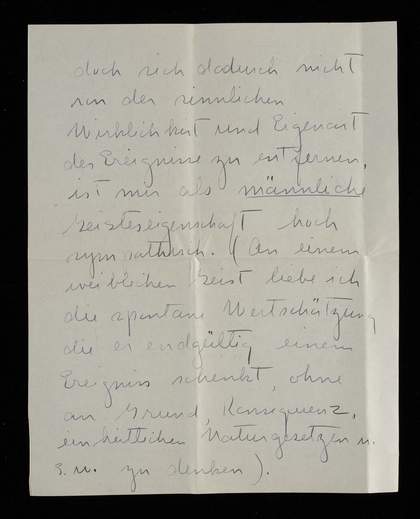 doch sich dadurch nicht
von der sinnlichen
Wirklichkeit und Eigenart
der Ereignisse zu entfernen,
ist mir als männliche
Geisteseigenschaft hoch
sympathisch. (An einem
weiblichen Geist liebe ich
die spontane Wertschätzung
die er endgültig einem
Ereignis schenkt, ohne
an Grund, Konsequenz,
einheitlichen Naturgesetzen u.
s. w. zu denken).